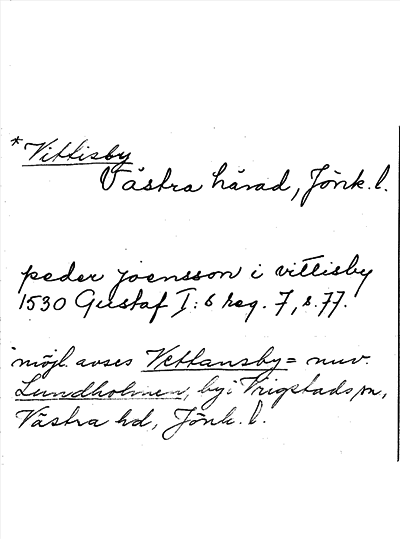 *Vittisby
Västra härad, Jönk. l.
peder joensson i vittisby
1530 Gustaf I:s reg. 7, s. 77.
möjl. avses Vettansby = nuv.
Lundholmen, by i Vrigstads sn,
Västra hd, Jönk. l.